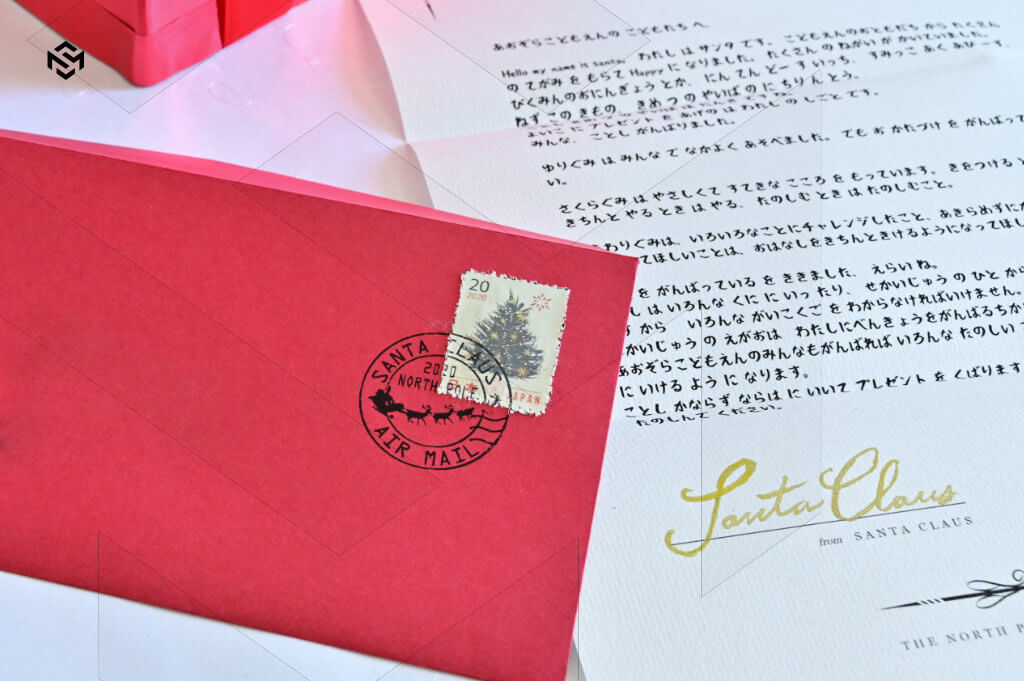 あおぞらこどもえんの こどもたち へ
Hello my name is santa。 わたし は サンタ です。 こどもえんのおともだち から たくさん
の てがみ を もらて Happy に なりました。 たくさん の ねがい が かいていました。
ぴくみんのおにんぎょう とか、 にん てん どーす いっち、 すみっこ あく あびーず。
ねず この きもの、 きめ つ の やいば の に ち りん とう。
よいこ に プレゼント を あげの は わたし の しごと です。
みんな、 ことし がんばりました。
ゆりぐみ は みんな で なかよく あそべました。 ても お かたづけ を がんばって
い。
さくらぐみ は やさしくて すてきな こころ を もっています。 きをつける と
きちんと やる とき は やる、 たのしむ とき は たのしむこと。
わりぐみは、いろいろなことにチャレンジしたこと、あきらめずに
てほしいことは、おはなしをきちんときけるようになってほし
を がんばっている を ききました、 えらい ね。
し は いろんな くに に いったり、 せかいじゅう の ひと か
から いろんな がいこくご を わからなければいけません。
かいじゅう の えがおは わたしにべんきょうをがんばるちか
あおぞらこどもえんのみんなもがんばれば いろんな たのしい
に いける よう に なります。
ことし かならず ならは に いいて プレゼント を くばります
たのしんで ください。
20
2020
JAPAN
SANTA CLAUS
2020
NORTH POLE
AIR MAIL
Santa Claus
from SANTA CLAUS
THE NORTH P